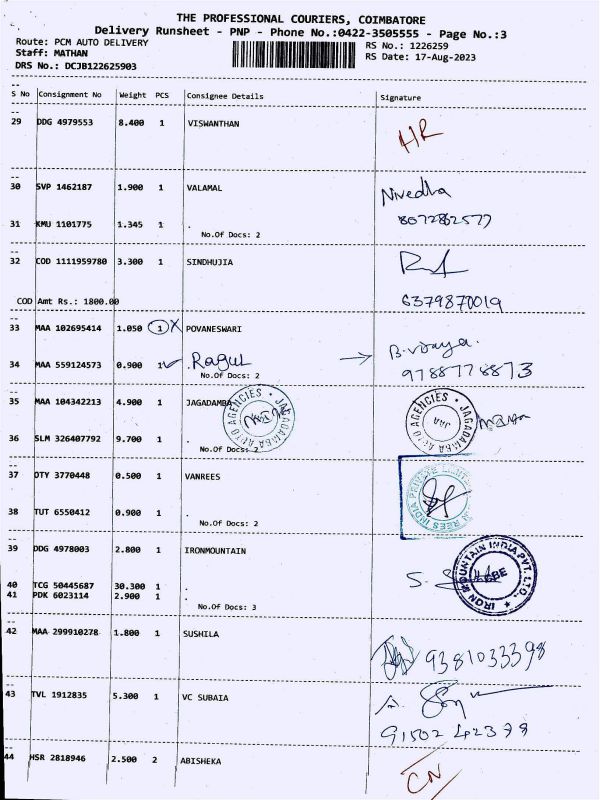 THE PROFESSIONAL COURIERS, COIMBATORE
Delivery Runsheet - PNP - Phone No.:0422-3505555 - Page No.:3
Route: PCM AUTO DELIVERY RS No.: 1226259
Staff: MATHAN RS Date: 17-Aug-2023
DRS No.: DCJB122625903
S No Consignment No Weight PCS Consignee Details Signature
29 DDG 4979553 8.400 1 VISWANTHAN
30 SVP 1462187 1.900 1 VALAMAL Nivedha
31 KMU 1101775 1.345 1 . 8072862577
No.Of Docs: 2
32 COD 1111959780 3.300 1 SINDHUJIA
COD Amt Rs.: 1800.00 6379870019
33 MAA 102695414 1.050 1 X POVANESWARI B.vijaya.
34 MAA 559124573 0.900 1 ✓ Ragul → 9788778873
No.Of Docs: 2
35 MAA 104342213 4.900 1 JAGADAMBA
JAGADAMBA AUTO AGENCIES
JAGADAMBA AUTO AGENCIES
36 SLM 326407792 9.700 1 .
No.Of Docs: 2
37 OTY 3770448 0.500 1 VANREES
REES INDIA PRIVATE LIMITED
38 TUT 6550412 0.900 1 .
No.Of Docs: 2
39 DDG 4978003 2.800 1 IRONMOUNTAIN
IRON MOUNTAIN INDIA PVT. LTD.
40 TCG 50445687 30.300 1 .
41 PDK 6023114 2.900 1 .
No.Of Docs: 3
42 MAA 299910278 1.800 1 SUSHILA 9381033398
43 TVL 1912835 5.300 1 VC SUBAIA
44 HSR 2818946 2.500 2 ABISHEKA CN